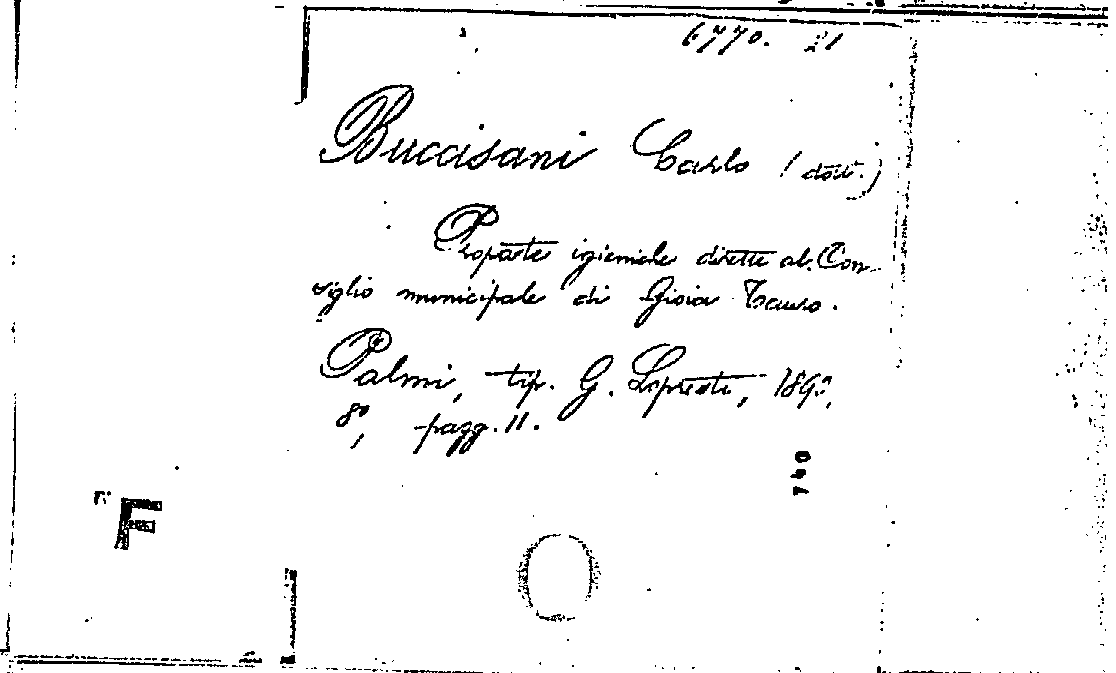 6770. 21
Buccisani Carlo (dott.)
Proposte igieniche dirette al Con-
siglio municipale di Gioia Tauro.
Palmi, tip. G. Lopresti, 189
8º, pagg. 11.
740
F